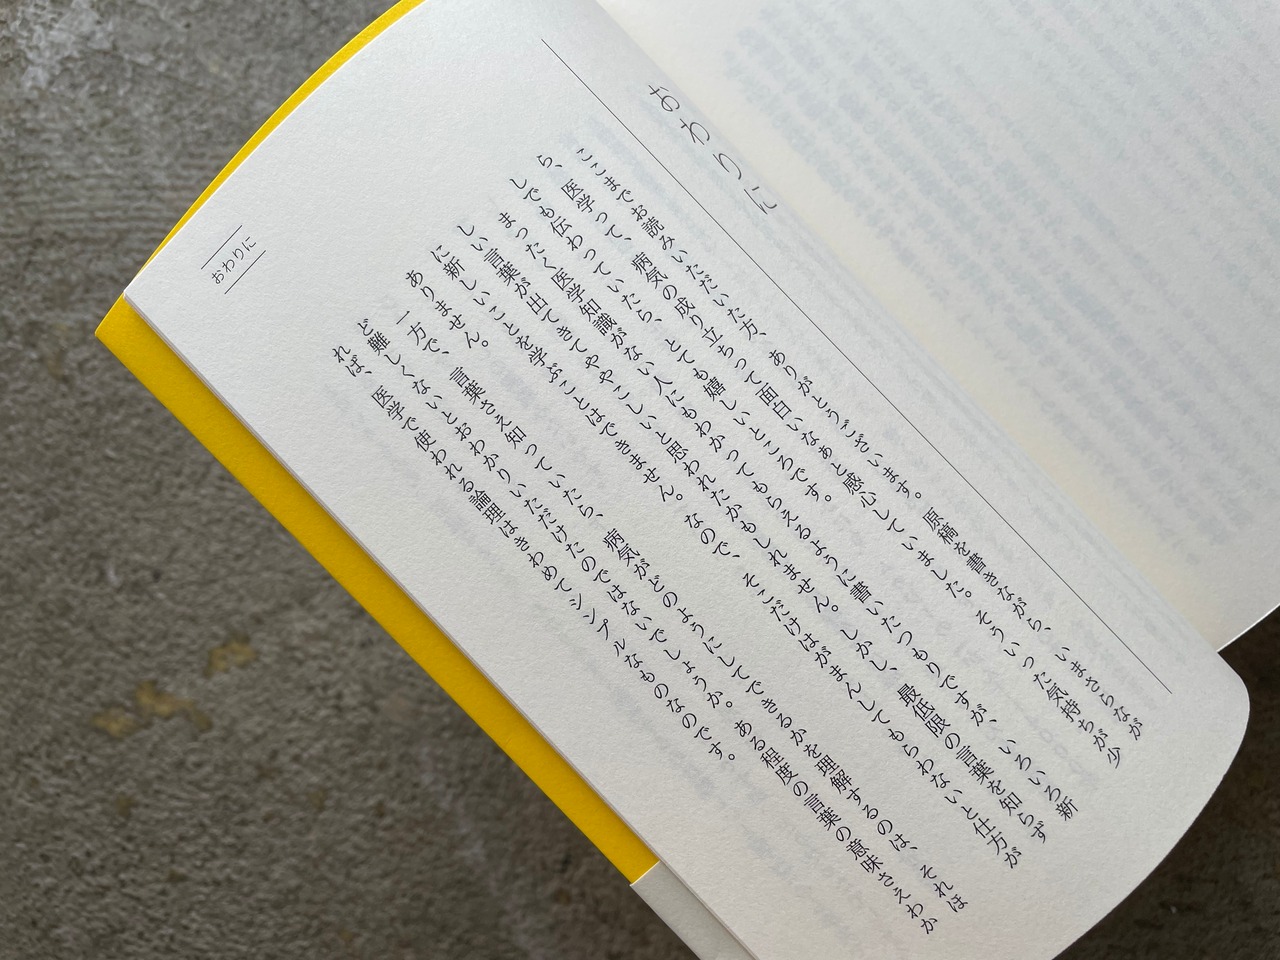 おわりに
ここまでお読みいただいた方、ありがとうございます。原稿を書きながら、いまさらなが
ら、医学って、病気の成り立ちって面白いなぁと感心していました。そういった気持ちが少
しでも伝わっていたら、とても嬉しいところです。
まったく医学知識がない人にもわかってもらえるように書いたつもりですが、いろいろ新
しい言葉が出てきてややこしいと思われたかもしれません。しかし、最低限の言葉を知らず
に新しいことを学ぶことはできません。なので、そこだけはがまんしてもらわないと仕方が
ありません。
一方で、言葉さえ知っていたら、病気がどのようにしてできるかを理解するのは、それほ
ど難しくないとおわかりいただけたのではないでしょうか。ある程度の言葉の意味さえわか
れば、医学で使われる論理はきわめてシンプルなものなのです。
おわりに